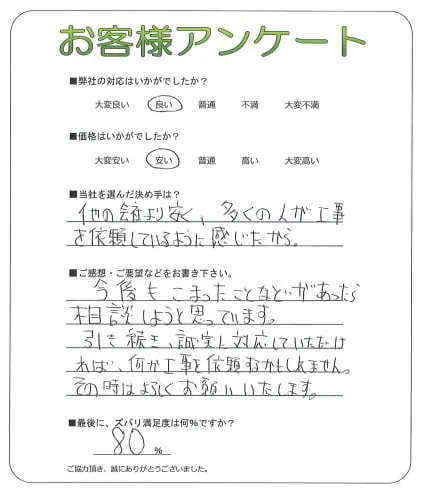 お客様アンケート
■弊社の対応はいかがでしたか？
大変良い 良い 普通 不満 大変不満
■価格はいかがでしたか？
大変安い 安い 普通 高い 大変高い
■当社を選んだ決め手は？
他の会社より安く、多くの人が工事
を依頼しているように感じたから。
■ご感想・ご要望などをお書き下さい。
今後もこまったことなどがあったら
相談しようと思っています。
引き続き、誠実に対応していただけ
れば、何か工事を依頼するかもしれません。
その時はよろしくお願いいたします。
■最後に、ズバリ満足度は何％ですか？
80 %
ご協力頂き、誠にありがとうございました。